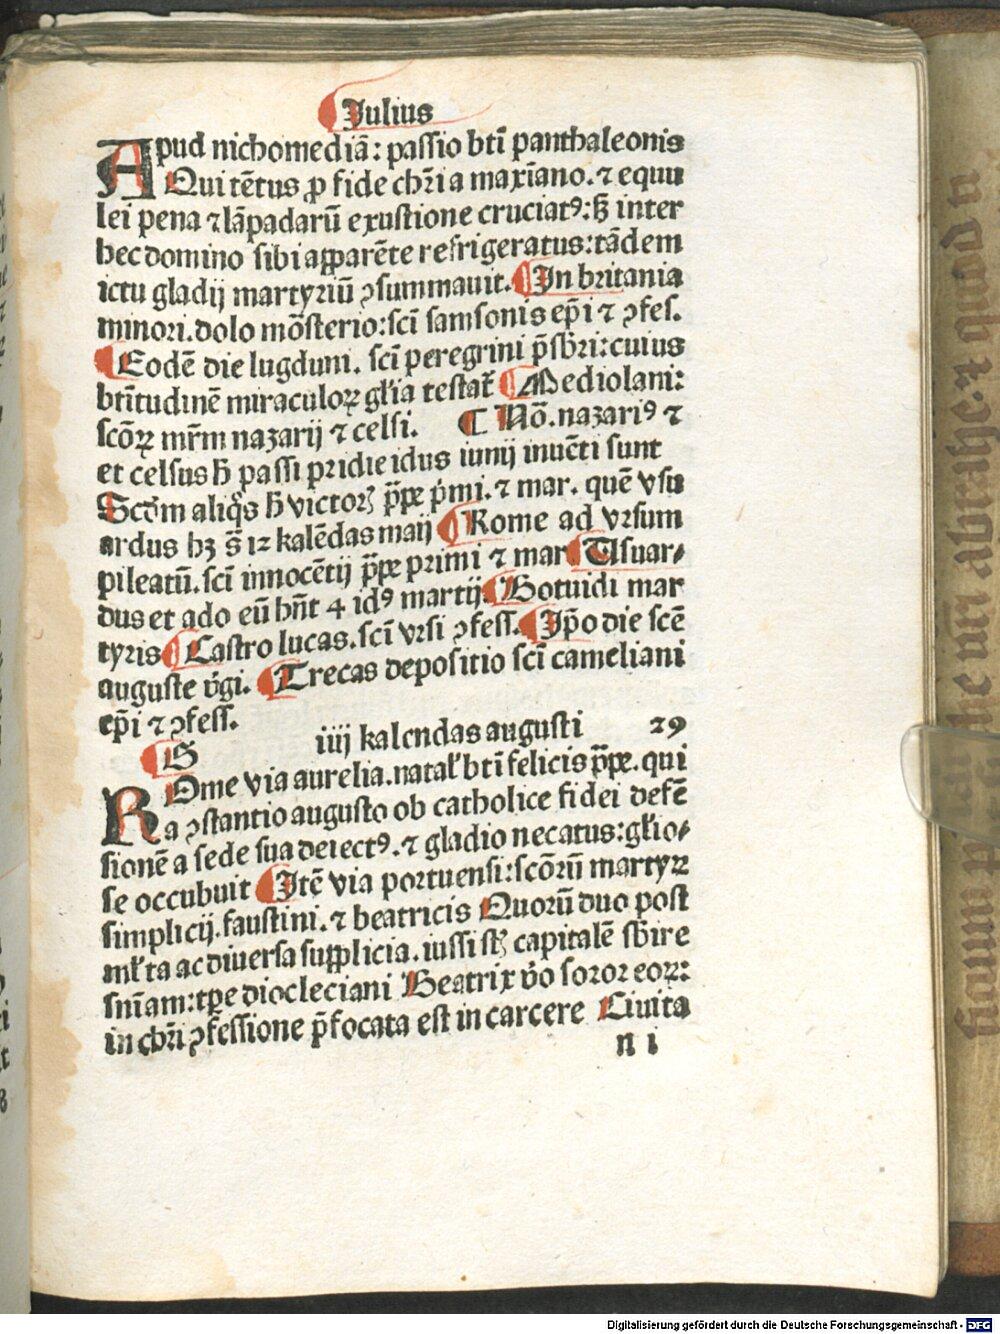 Julius
Apud nichomediā: passio bti̅ panthaleonis
Qui tētus ꝓ fide chr̄i a maxīano. ⁊ equu
lei pena ⁊ lāpadarū exustione cruciatꝰ: sꝫ inter
hec domino sibi apparēte refrigeratus: tādem
ictu gladij martyriū ꝯsummauit. ¶ In britania
minori. dolo mōsterio: sci̅ samsonis ep̄i ⁊ ꝯfes.
¶ Eodē die lugduni. sci̅ peregrini p̄sbr̄i: cuius
bti̅tudinē miraculoꝝ gl'ia testat᷑ ¶ Mediolani:
scōꝝ mr̄m nazarij ⁊ celsi. ¶ Nō. nazariꝰ ⁊
et celsus h̄ passi pridie idus iunij inuēti sunt
Scd̄m aliq̄s h̄ victorꝭ pp̄e p̄mi. ⁊ mar. quē vsu
ardus hꝫ s̄ 12 kalēdas maij ¶ Rome ad vrsum
pileatū. sci̅ innocētij pp̄e primi ⁊ mar ¶ Usuar⸗
dus et ado eū hn̄t 4 idꝰ martij ¶ Botuidi mar
tyris ¶ Castro lucas. sci̅ vrsi ꝯfess. ¶ Ip̄o die scē
auguste v̄gi. ¶ Trecas depositio sci̅ cameliani
ep̄i ⁊ ꝯfess.
¶ G iiij kalendas augusti 29
ROme via aurelia. natal' bti̅ felicis pp̄e. qui
a ꝯstantio augusto ob catholice fidei defē
sionē a sede sua deiectꝰ. ⁊ gladio necatus: gl'io⸗
se occubuit ¶ Itē via portuensi: scōrū martyꝝ
simplicij. faustini. ⁊ beatricis Quorū duo post
ml'ta ac diuersa supplicia. iussi st̄ capitalē sb̄ire
sni̅am: tp̄e diocleciani Beatrix v̄o soror eoꝝ:
in chr̄i ꝯfessione p̄focata est in carcere Ciuita
n i
Digitalisierung gefördert durch die Deutsche Forschungsgemeinschaft - DFG